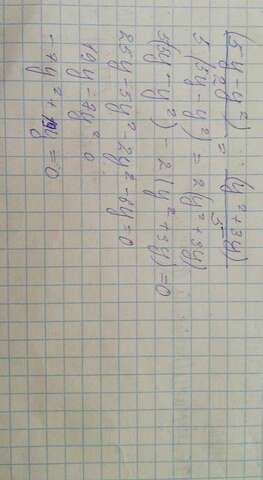 (5y-y²)/2 = (y²+3y)/5
5(5y-y²) = 2(y²+3y)
5(5y-y²) - 2(y²+3y)=0
25y-5y²-2y²-6y=0
19y-7y² 0
-7y²+19y=0